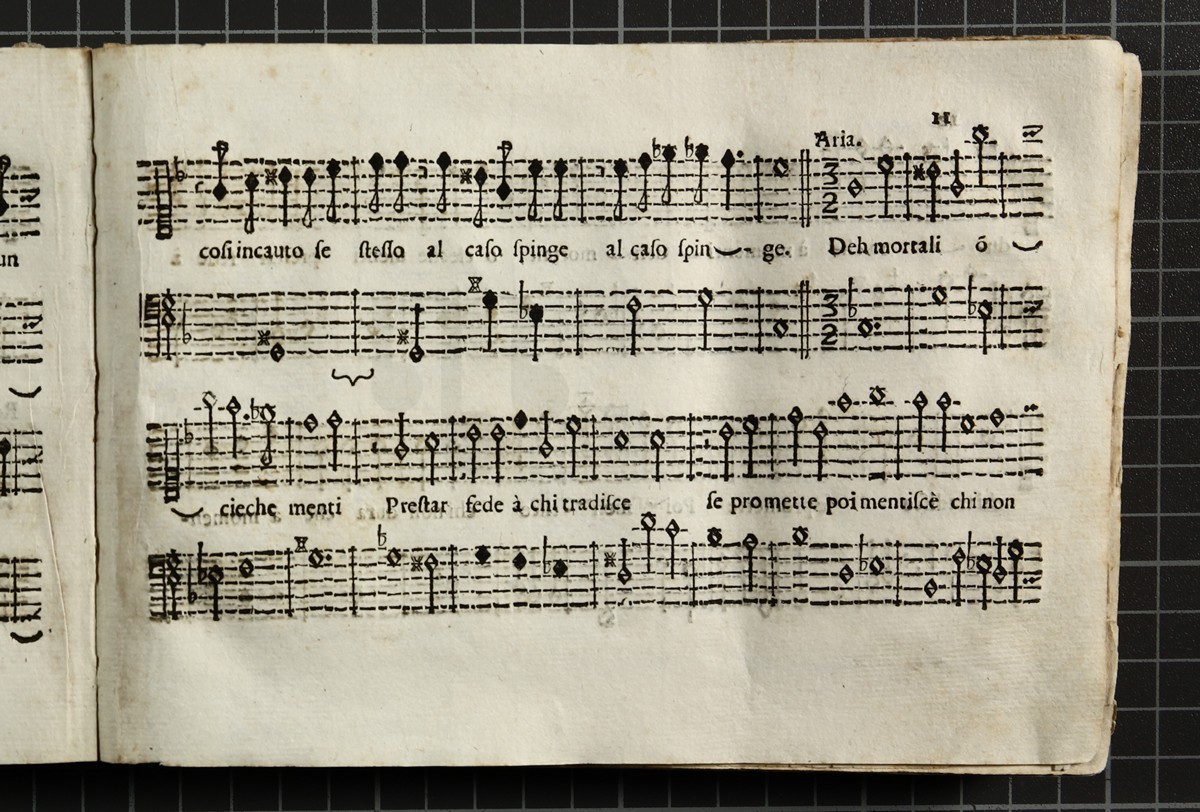 11
Aria.
un
coſi incauto ſe ſteſſo al caſo ſpinge al caſo ſpin- ge. Deh mortali ó
3 3
2 2
cieche menti Preſtar fede à chi tradiſce ſe promette poi mentiſcè chi non